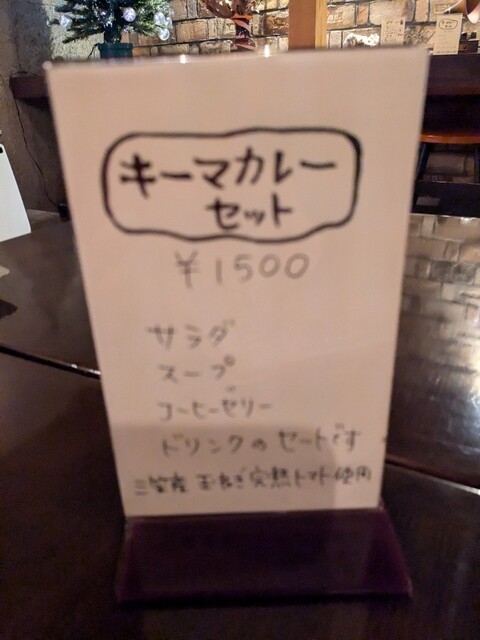 キーマカレー
セット
¥1500
サラダ
スープ
コーヒーゼリー
ドリンクのセートです
三笠産 玉ねぎ完熟トマト使用